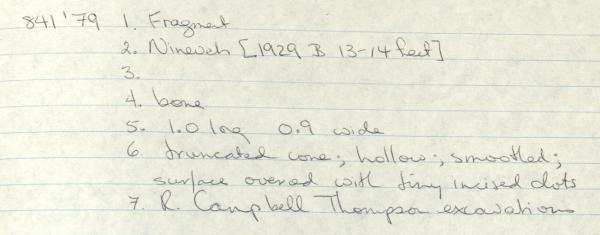 841'79 1. Fragment
2. Nineveh [1929 B 13-14 feet]
3.
4. bone
5. 1.0 long 0.9 wide
6. truncated cone; hollow; smoothed;
surface overed with tiny incised dots
7. R. Campbell Thompson excavations